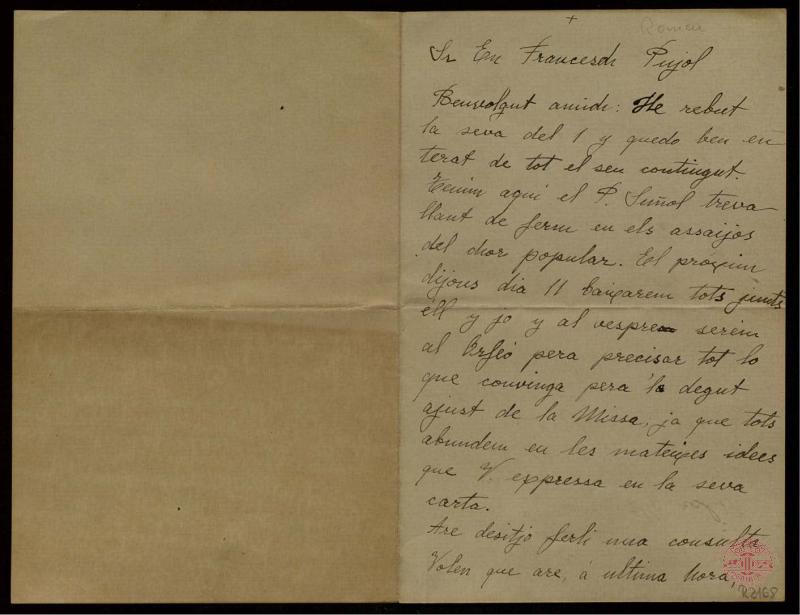 +
Romeu
Sr En Francesch Pujol
Benvolgut amich: He rebut
la seva del 1 y quedo ben en
terat de tot el seu contingut.
Tenim aquí el P. Suñol treva
llant de ferm en els assaijos
del chor popular. El proxim
dijous dia 11 baixarem tots junts
ell y jo y al vespre serem
al Orfeó pera precisar tot lo
que convinga pera 'l degut
ajust de la Missa, ja que tots
abundem en les mateixes idees
que V. expressa en la seva
carta.
Are desitjo ferli una consulta
Volen que are, á ultima hora,
R2168